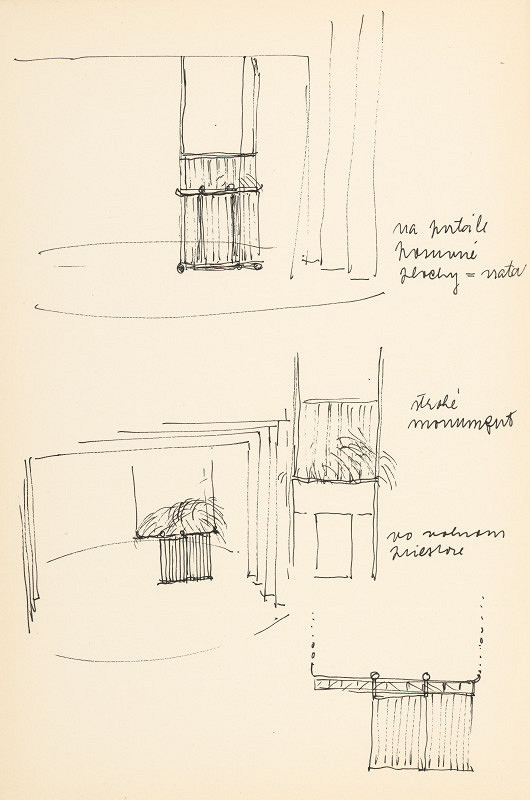 na portále
posuvné
plochy = vrata
strohé
monument
vo voľnom
priestore